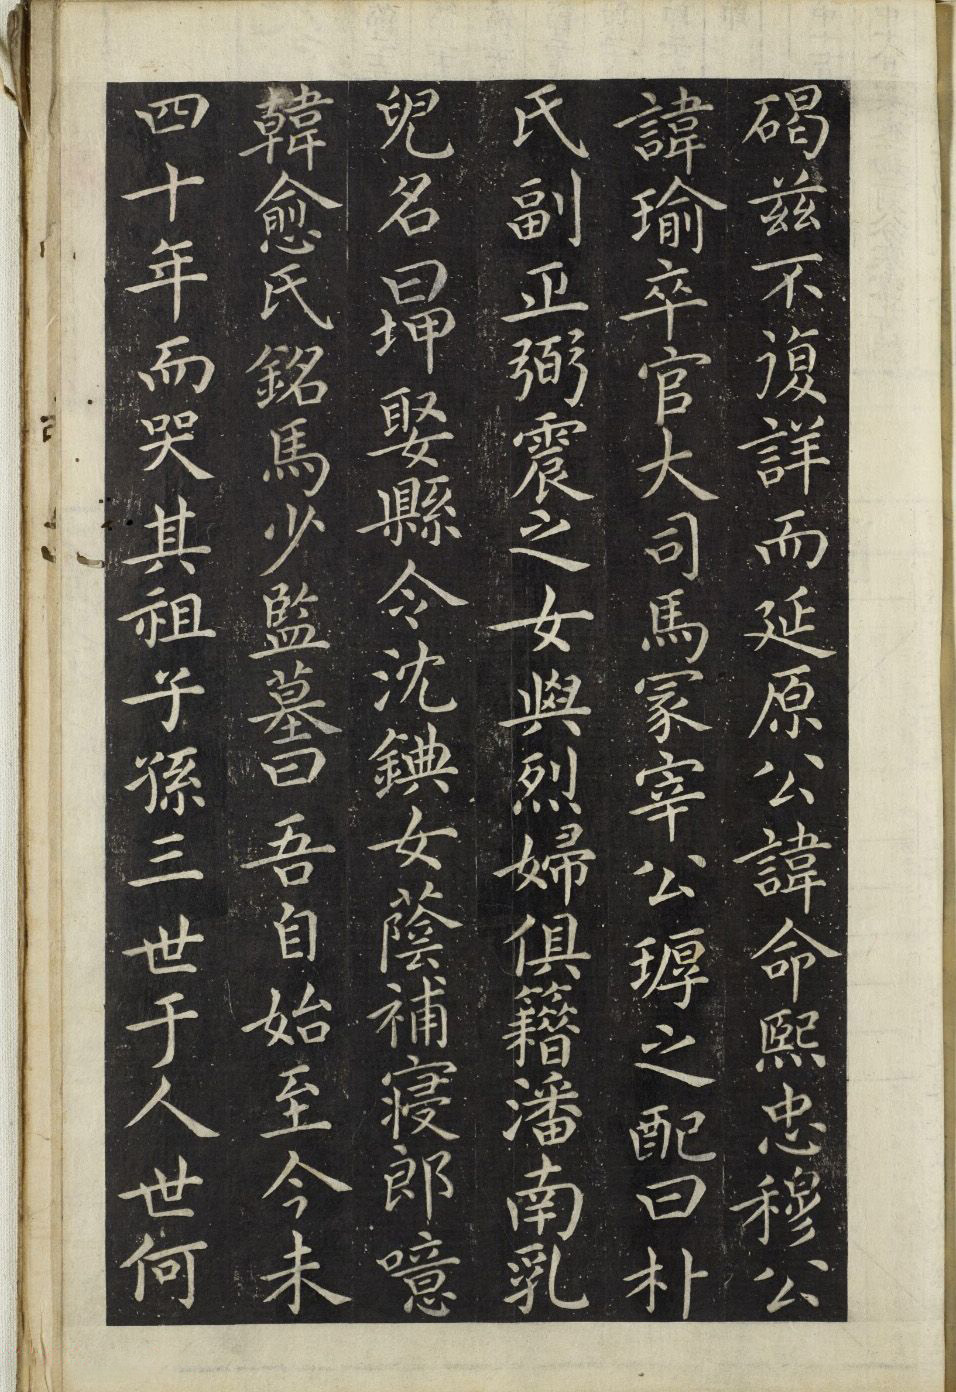 碣茲不復詳而延原公諱命熙忠穆公
諱瑜卒官大司馬冢宰公㻐之配曰朴
氏副正弼震之女與烈婦俱籍潘南乳
兒名曰坤娶縣令沈錪女蔭補寢郎噫
韓愈氏銘馬少監墓曰吾自始至今未
四十年而哭其祖子孫三世于人世何